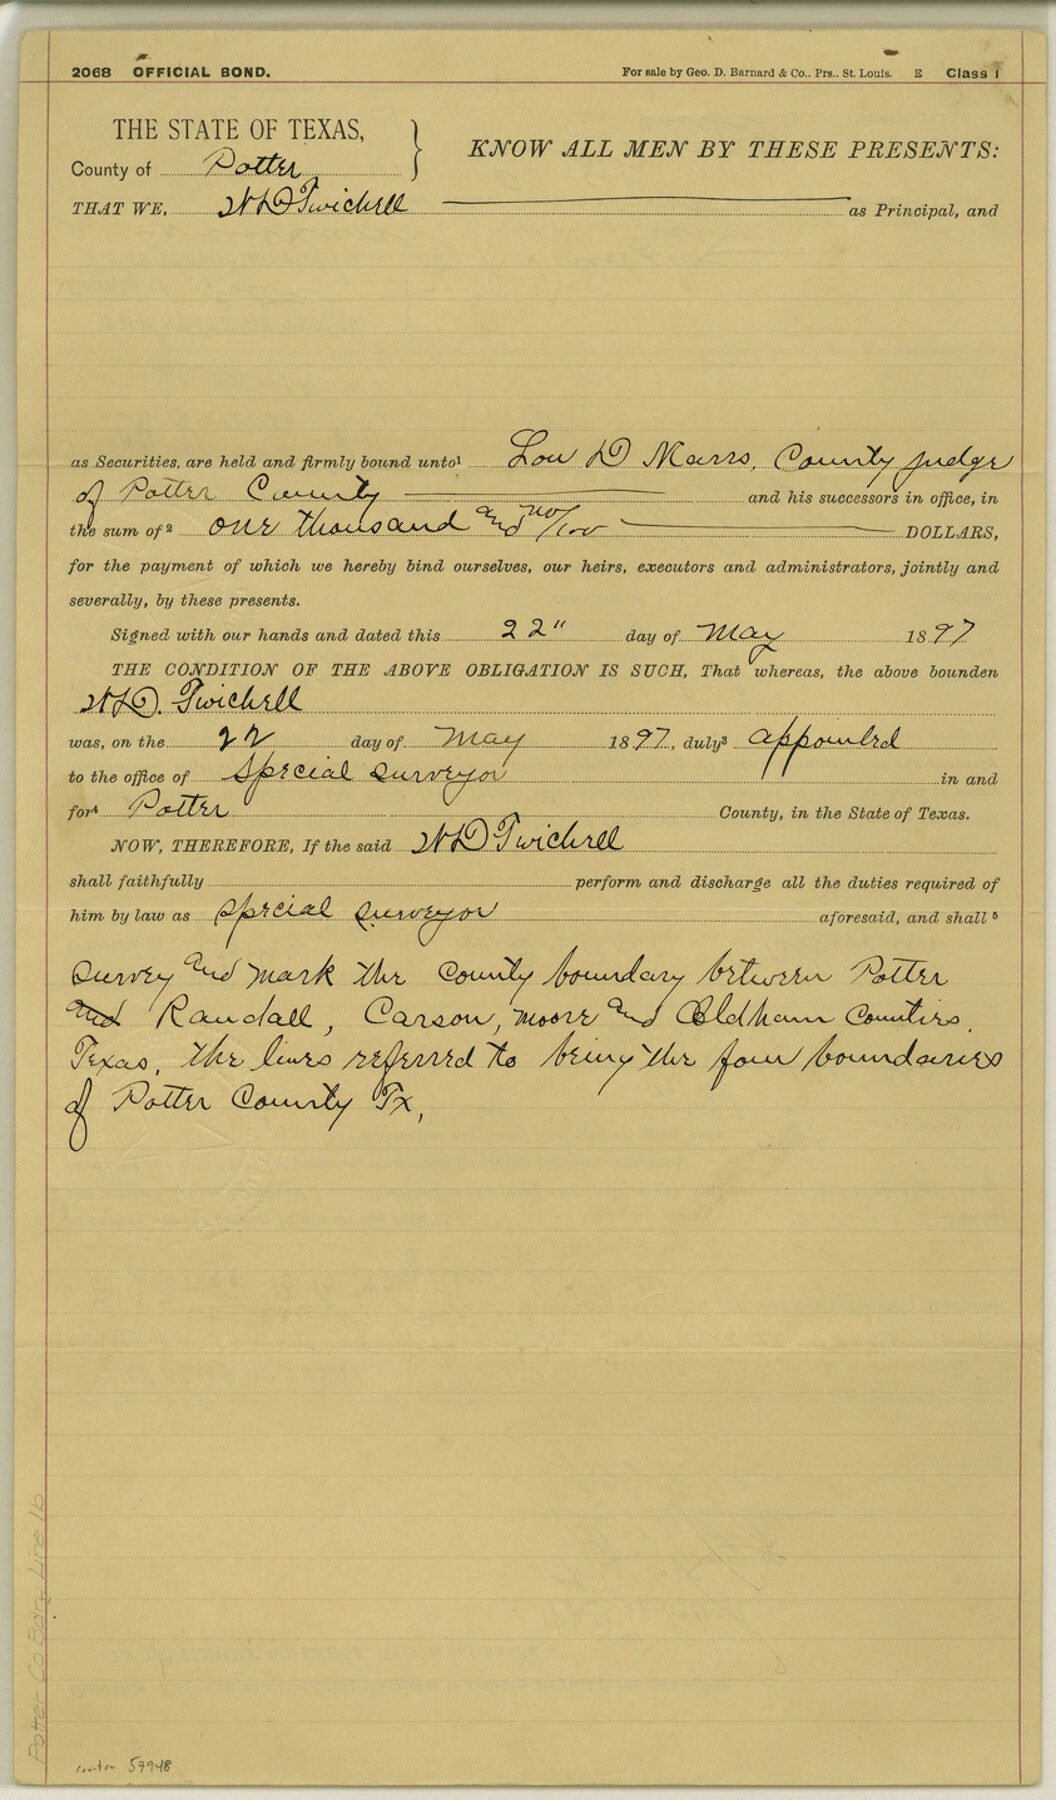 2068 OFFICIAL BOND. For sale by Geo. D. Barnard & Co., Prs., St. Louis. E Class 1
THE STATE OF TEXAS,
County of Potter
KNOW ALL MEN BY THESE PRESENTS:
THAT WE, W D Twichell as Principal, and
as Securities, are held and firmly bound unto¹ Lou D Marrs, County judge
of Potter County and his successors in office, in
the sum of² one thousand and no/100 DOLLARS,
for the payment of which we hereby bind ourselves, our heirs, executors and administrators, jointly and
severally, by these presents.
Signed with our hands and dated this 22" day of May 1897
THE CONDITION OF THE ABOVE OBLIGATION IS SUCH, That whereas, the above bounden
W D. Twichell
was, on the 22 day of May 1897, duly³ appointed
to the office of special surveyor in and
for⁴ Potter County, in the State of Texas.
NOW, THEREFORE, If the said W D Twichell
shall faithfully perform and discharge all the duties required of
him by law as special surveyor aforesaid, and shall⁵
survey and mark the county boundary between Potter
and Randall, Carson, Moore and Oldham Counties,
Texas, the lines referred to being the four boundaries
of Potter County Tx,
Potter Co Bdry Line 1b
counter 57948